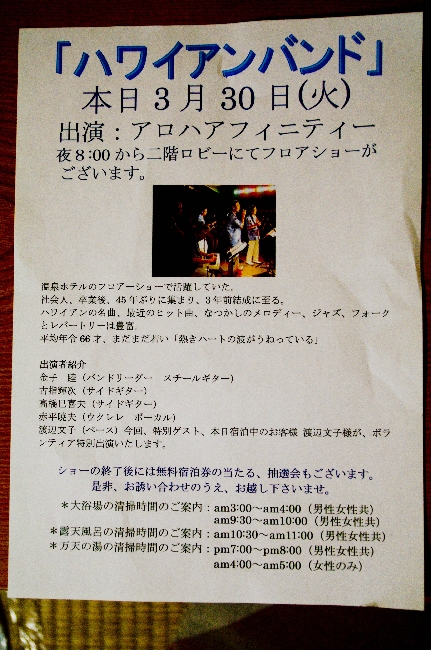 「ハワイアンバンド」
本日3月30日(火)
出演：アロハアフィニティー
夜8:00から二階ロビーにてフロアショーが
ございます。
温泉ホテルのフロアーショーで活躍していた。
社会人、卒業後、45年ぶりに集まり、3年前結成に至る。
ハワイアンの名曲、最近のヒット曲、なつかしのメロディー、ジャズ、フォーク
とレパートリーは豊富。
平均年令66才、まだまだ若い「熱きハートの波がうねっている」
出演者紹介
金子 睦（バンドリーダー スチールギター）
輝次（サイドギター）
高橋巳喜夫（サイドギター）
赤平暁夫（ウクレレ ボーカル）
渡辺文子（ベース）今回、特別ゲスト、本日宿泊中のお客様 渡辺文子様が、ボラ
ンティア特別出演いたします。
ショーの終了後には無料宿泊券の当たる、抽選会もございます。
是非、お誘い合わせのうえ、お越し下さいませ。
＊大浴場の清掃時間のご案内：am3:00～am4:00（男性女性共）
am9:30～am10:00（男性女性共）
＊露天風呂の清掃時間のご案内：am10:30～am11:00（男性女性共）
＊万天の湯の清掃時間のご案内：pm7:00～pm8:00（男性女性共）
am4:00～am5:00（女性のみ）